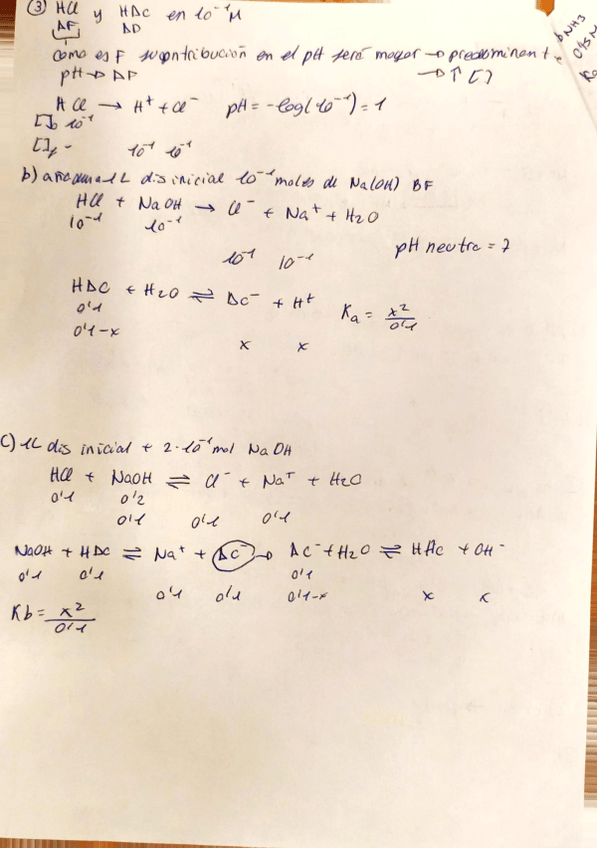 ③ HCl y HAc en 10⁻¹M
AF AD
como es F su contribución en el pH será mayor → predominante
pH → AF → ↑ []
HCl → H⁺ + Cl⁻ pH = -log(10⁻¹) = 1
[]₀ 10⁻¹
[]f - 10⁻¹ 10⁻¹
b) a 1L dis inicial 10⁻¹ moles de Na(OH) BF
HCl + NaOH → Cl⁻ + Na⁺ + H2O
10⁻¹ 10⁻¹
10⁻¹ 10⁻¹ pH neutro = 7
HAc + H2O ⇌ Ac⁻ + H⁺ Ka = x²/0'1
0'1
0'1-x x x
c) 1L dis inicial + 2·10⁻¹ mol NaOH
HCl + NaOH ⇌ Cl⁻ + Na⁺ + H2O
0'1 0'2
0'1 0'1 0'1
NaOH + HAc ⇌ Na⁺ + Ac⁻ → Ac⁻ + H2O ⇌ HAc + OH⁻
0'1 0'1 0'1
0'1 0'1 0'1-x x x
Kb = x²/0'1
NH3
0'15 M